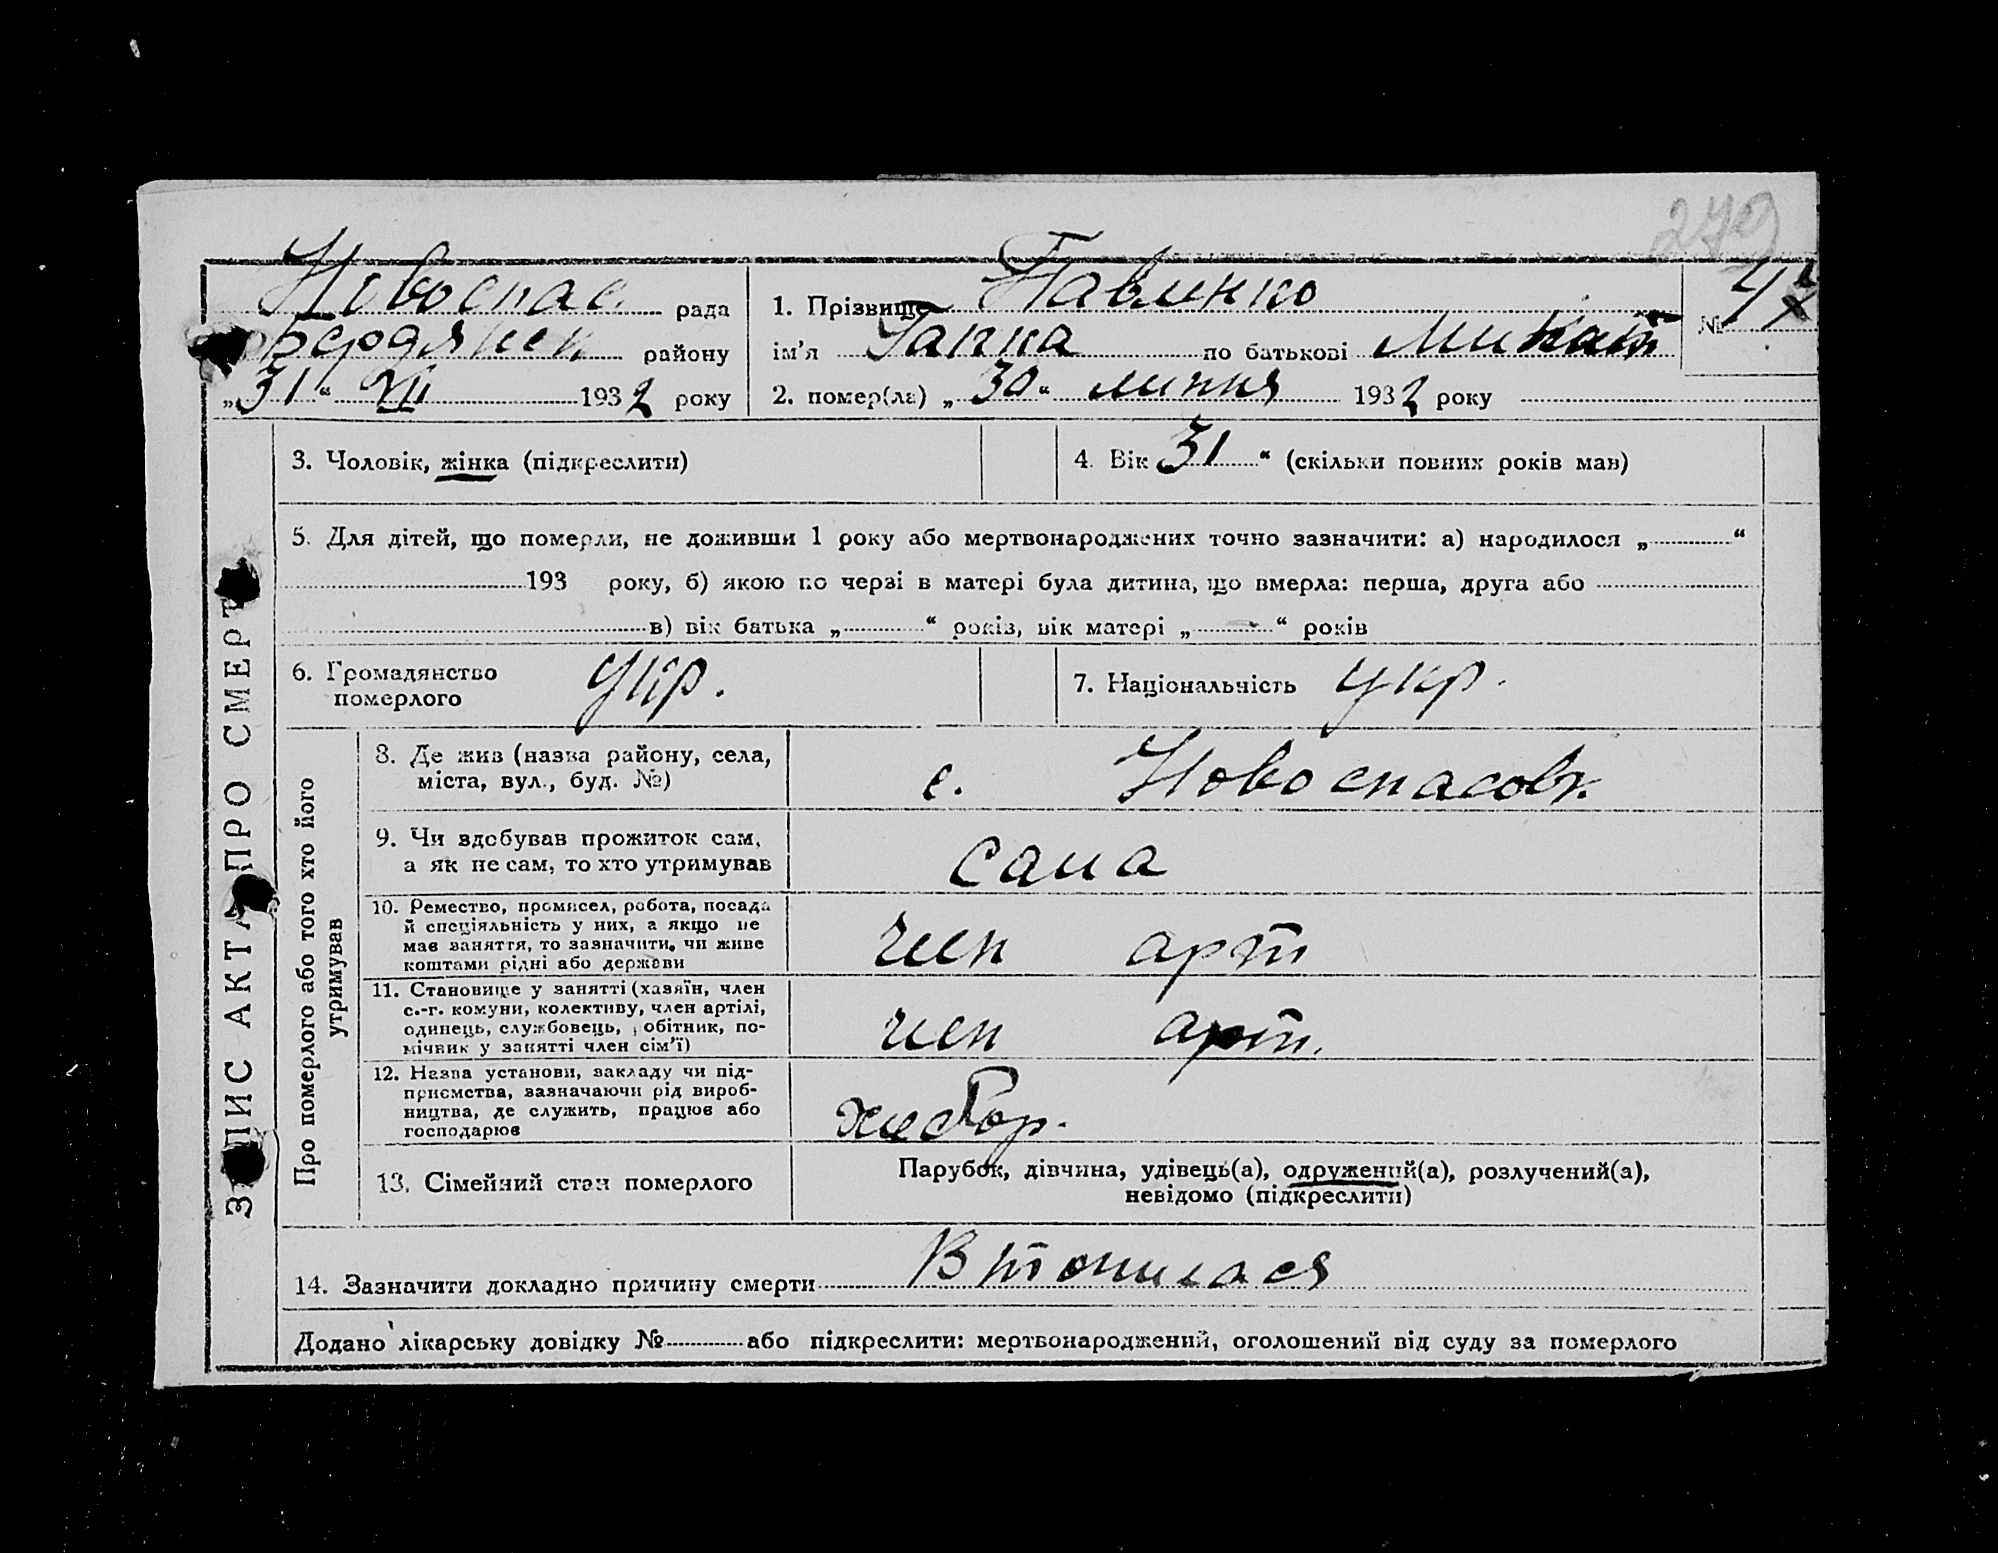 279
Новоспас. рада
Бердянськ району
„31“ VII 1932 року
1. Прізвище Павленко
ім’я Ганна по батькові
2. помер(ла) „30“ липня 1932 року
№ 47
ЗАПИС АКТА ПРО СМЕРТЬ
3. Чоловік, жінка (підкреслити)
4. Вік 31 “ (скільки повних років мав)
5. Для дітей, що померли, не доживши 1 року або мертвонароджених точно зазначити: а) народилося „ “
193 року, б) якою по черзі в матері була дитина, що вмерла: перша, друга або
в) вік батька „ “ років, вік матері „ “ років
6. Громадянство
померлого укр.
7. Національність укр.
Про померлого або того хто його
утримував
8. Де жив (назва району, села,
міста, вул., буд. №)
с. Новоспасовк.
9. Чи здобував прожиток сам,
а як не сам, то хто утримував
сама
10. Ремество, промисел, робота, посада
й спеціяльність у них, а якщо не
має заняття, то зазначити, чи живе
коштами рідні або держави
член арт
11. Становище у занятті (хазяїн, член
с.-г. комуни, колективу, член артілі,
одинець, службовець, робітник, по-
мічник у занятті член сім’ї)
член арт.
12. Назва установи, закладу чи під-
приємства, зазначаючи рід вироб-
ництва, де служить, працює або
господарює
хлебор.
13. Сімейний стан померлого
Парубок, дівчина, удівець(а), одружений(а), розлучений(а),
невідомо (підкреслити)
14. Зазначити докладно причину смерти Втопилася
Додано лікарську довідку № або підкреслити: мертвонароджений, оголошений від суду за померлого